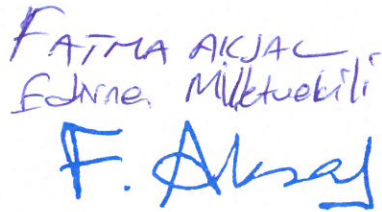 FATMA AKSAL
Edirne Milletvekili
F. Aksal